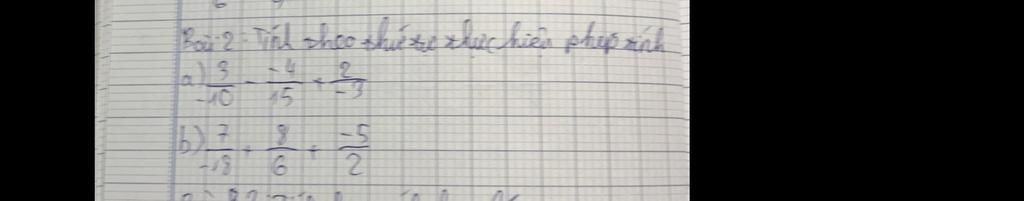 Bài 2: Tính theo thứ tự thực hiện phép tính
a) 3/-10 - -4/15 + 2/-3
b) 7/-18 + 8/6 + -5/2